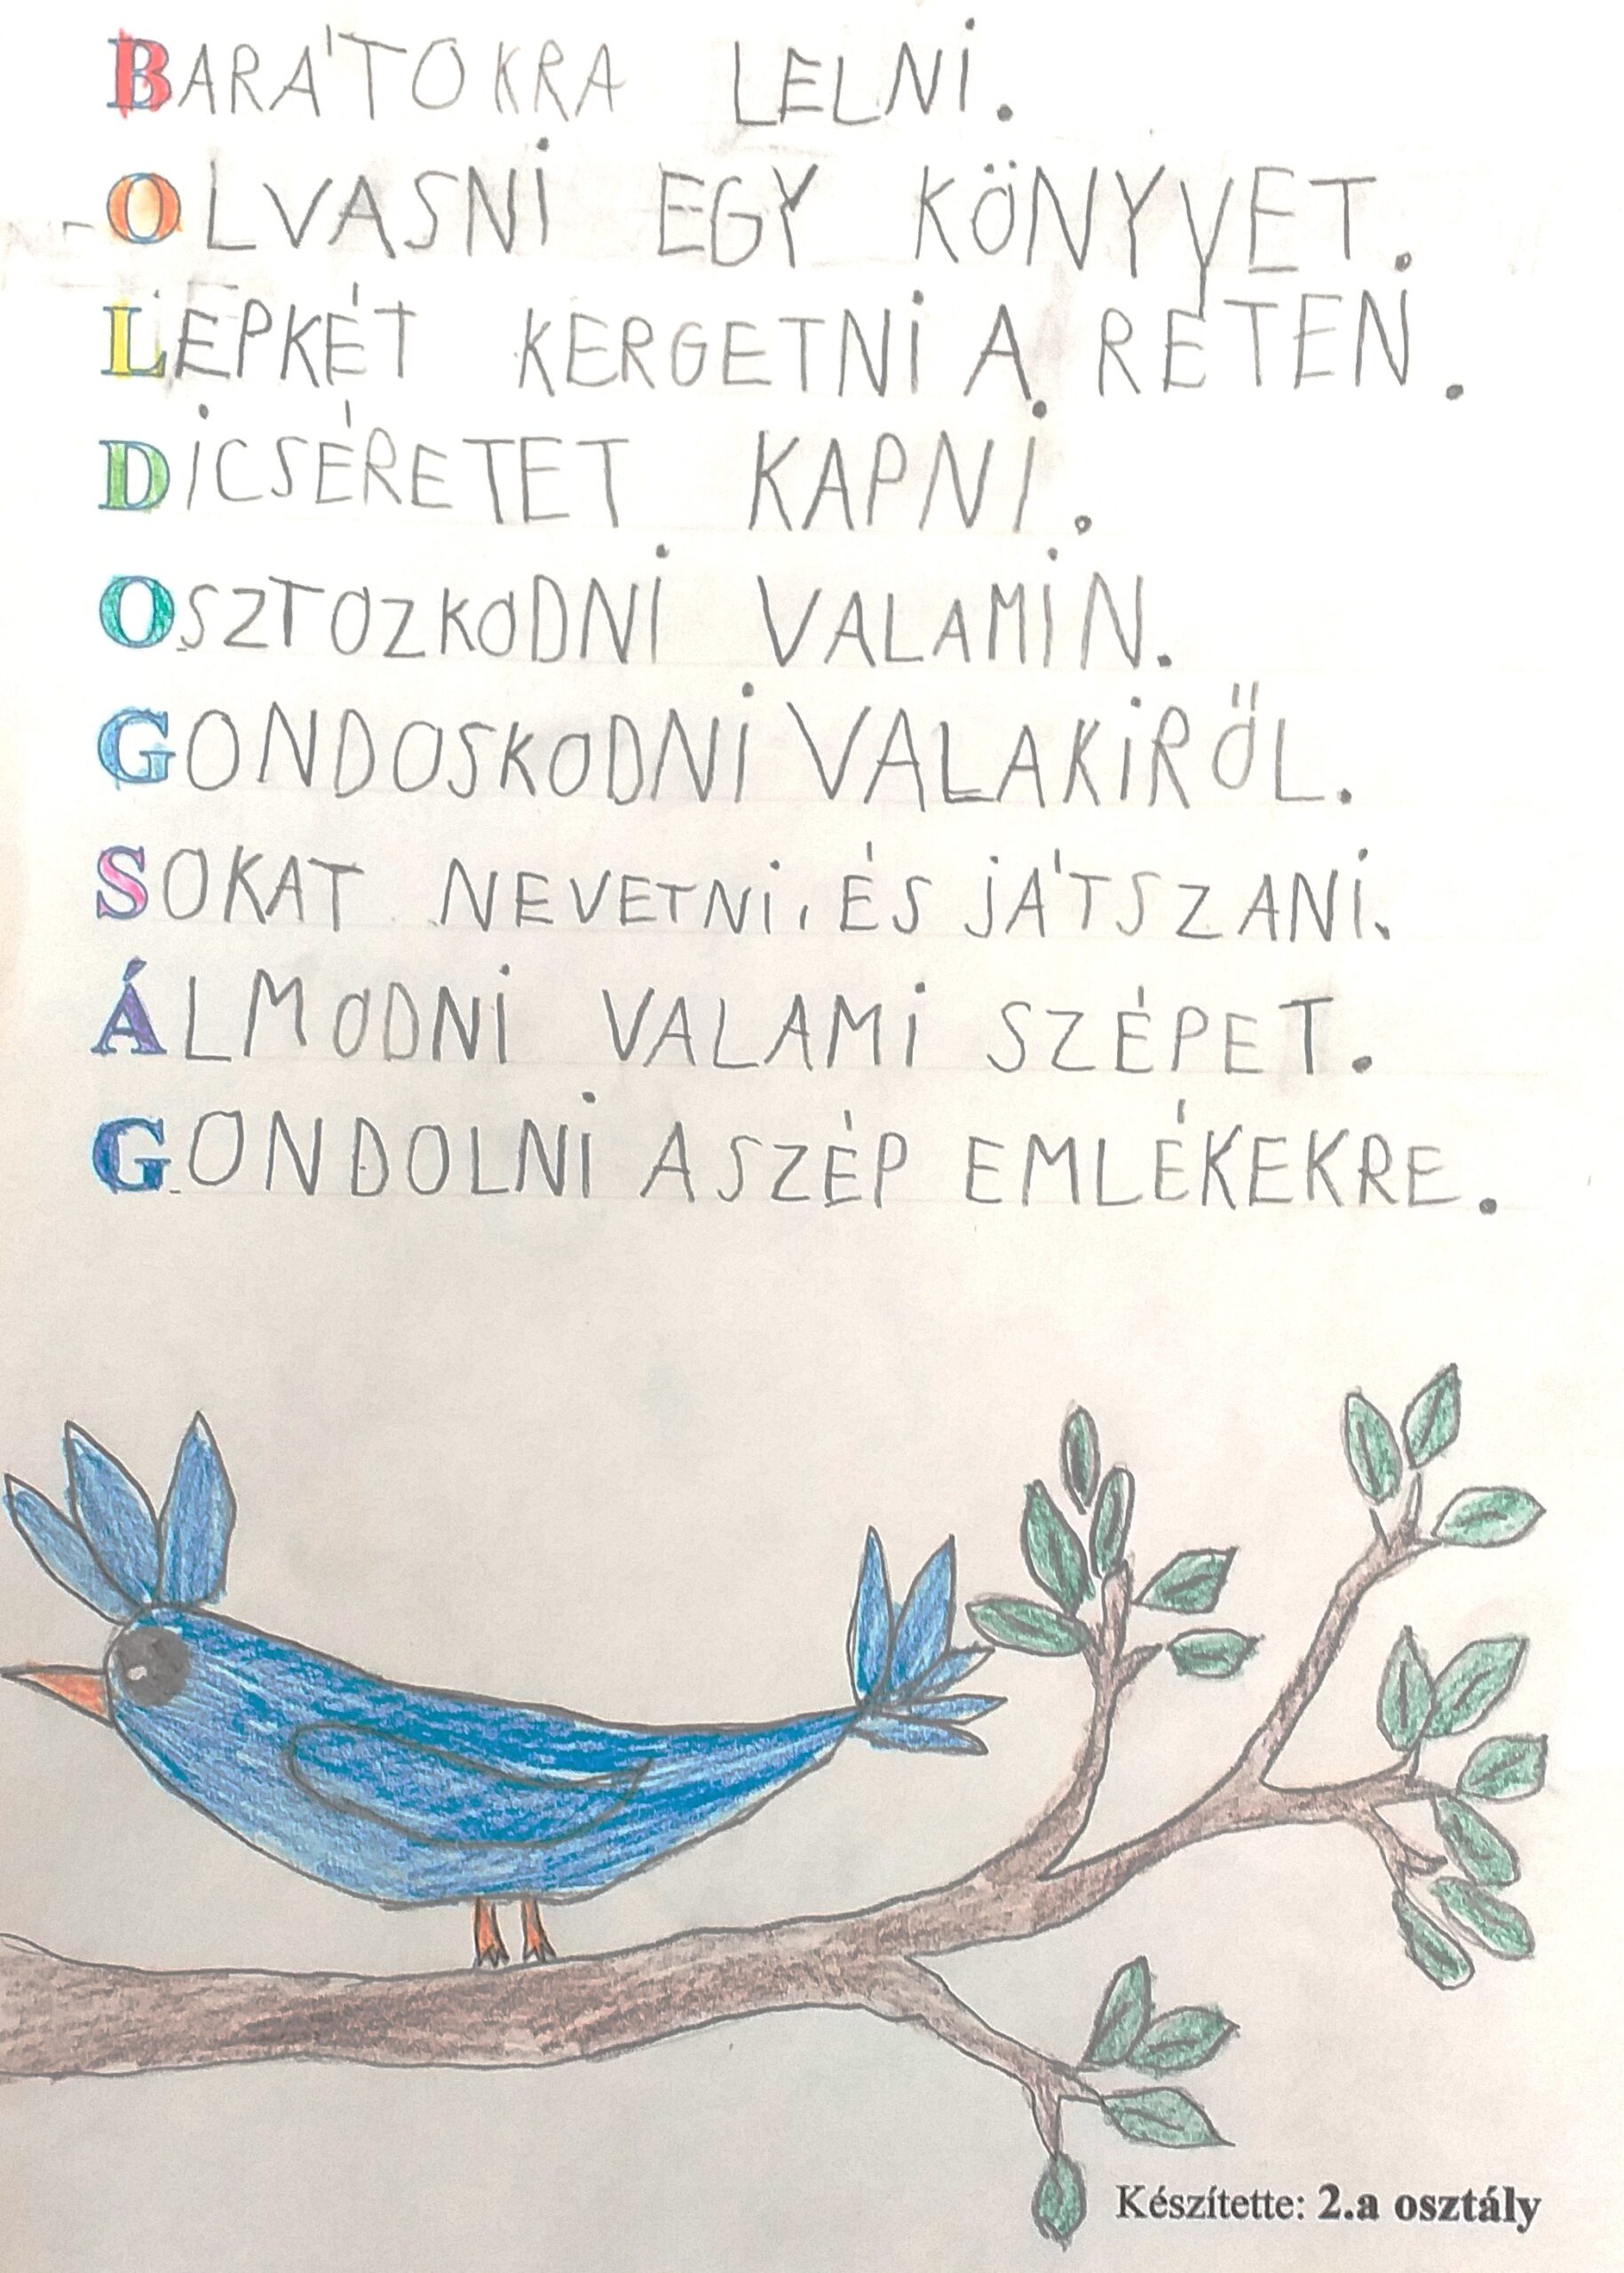 BARÁTOKRA LELNI.
OLVASNI EGY KÖNYVET.
LEPKÉT KERGETNI A RÉTEN.
DICSÉRETET KAPNI.
OSZTOZKODNI VALAMIN.
GONDOSKODNI VALAKIRŐL.
SOKAT NEVETNI, ÉS JÁTSZANI.
ÁLMODNI VALAMI SZÉPET.
GONDOLNI A SZÉP EMLÉKEKRE.
Készítette: 2.a osztály